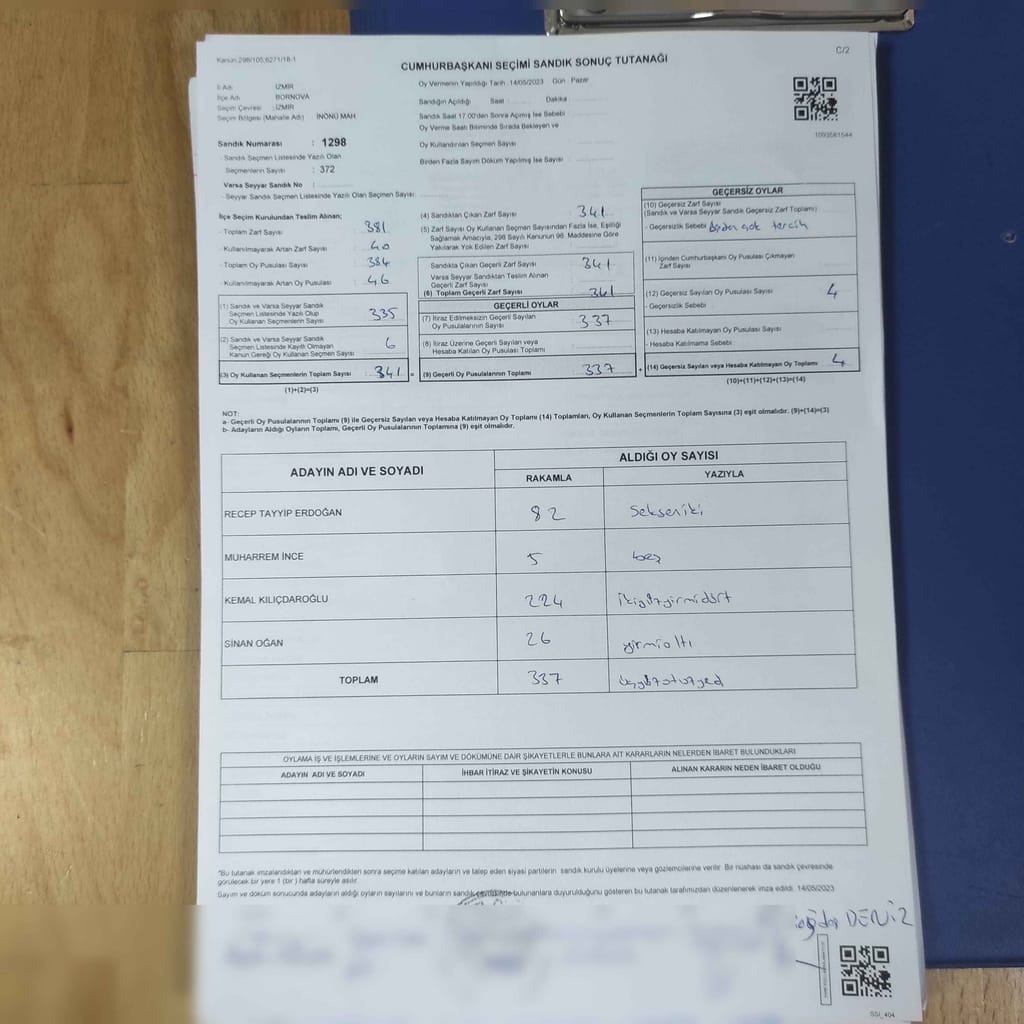 Kanun:298/105,6271/18-1
C/2
CUMHURBAŞKANI SEÇİMİ SANDIK SONUÇ TUTANAĞI
İl Adı : İZMİR
İlçe Adı : BORNOVA
Seçim Çevresi : İZMİR
Seçim Bölgesi (Mahalle Adı) İNÖNÜ MAH
Oy Vermenin Yapıldığı Tarih : 14/05/2023 Gün : Pazar
Sandığın Açıldığı Saat : Dakika :
Sandık Saat 17.00'den Sonra Açımış İse Sebebi
Oy Verme Saati Bitiminde Sırada Bekleyen ve
Oy Kullandırılan Seçmen Sayısı
Birden Fazla Sayım Döküm Yapılmış İse Sayısı
1093581544
Sandık Numarası : 1298
- Sandık Seçmen Listesinde Yazılı Olan
Seçmenlerin Sayısı : 372
Varsa Seyyar Sandık No :
- Seyyar Sandık Seçmen Listesinde Yazılı Olan Seçmen Sayısı:
İlçe Seçim Kurulundan Teslim Alınan;
- Toplam Zarf Sayısı 381
- Kullanılmayarak Artan Zarf Sayısı 40
- Toplam Oy Pusulası Sayısı 384
- Kullanılmayarak Artan Oy Pusulası 46
(1) Sandık ve Varsa Seyyar Sandık
Seçmen Listesinde Yazılı Olup
Oy Kullanan Seçmenlerin Sayısı 335
(2) Sandık ve Varsa Seyyar Sandık
Seçmen Listesinde Kayıtlı Olmayan
Kanun Gereği Oy Kullanan Seçmen Sayısı 6
(3) Oy Kullanan Seçmenlerin Toplam Sayısı : 341 =
(1)+(2)=(3)
(4) Sandıktan Çıkan Zarf Sayısı 341
(5) Zarf Sayısı Oy Kullanan Seçmen Sayısından Fazla İse, Eşitliği
Sağlamak Amacıyla, 298 Sayılı Kanunun 98. Maddesine Göre
Yakılarak Yok Edilen Zarf Sayısı
Sandıkta Çıkan Geçerli Zarf Sayısı : 341
Varsa Seyyar Sandıktan Teslim Alınan
Geçerli Zarf Sayısı
(6) Toplam Geçerli Zarf Sayısı : 341
GEÇERLİ OYLAR
(7) İtiraz Edilmeksizin Geçerli Sayılan
Oy Pusulalarının Sayısı : 337
(8) İtiraz Üzerine Geçerli Sayılan veya
Hesaba Katılan Oy Pusulası Toplamı
(9) Geçerli Oy Pusulalarının Toplamı : 337 +
GEÇERSİZ OYLAR
(10) Geçersiz Zarf Sayısı
(Sandık ve Varsa Seyyar Sandık Geçersiz Zarf Toplamı)
- Geçersizlik Sebebi Birden çok tercih
(11) İçinden Cumhurbaşkanı Oy Pusulası Çıkmayan
Zarf Sayısı
(12) Geçersiz Sayılan Oy Pusulası Sayısı 4
- Geçersizlik Sebebi
(13) Hesaba Katılmayan Oy Pusulası Sayısı
- Hesaba Katılmama Sebebi
(14) Geçersiz Sayılan veya Hesaba Katılmayan Oy Toplamı 4
(10)+(11)+(12)+(13)=(14)
NOT:
a- Geçerli Oy Pusulalarının Toplamı (9) ile Geçersiz Sayılan veya Hesaba Katılmayan Oy Toplamı (14) Toplamları, Oy Kullanan Seçmenlerin Toplam Sayısına (3) eşit olmalıdır. (9)+(14)=(3)
b- Adayların Aldığı Oyların Toplamı, Geçerli Oy Pusulalarının Toplamına (9) eşit olmalıdır.
ADAYIN ADI VE SOYADI
ALDIĞI OY SAYISI
RAKAMLA YAZIYLA
RECEP TAYYİP ERDOĞAN 82 Sekseniki
MUHARREM İNCE 5 beş
KEMAL KILIÇDAROĞLU 224 ikiyüzyirmidört
SİNAN OĞAN 26 yirmialtı
TOPLAM 337 üçyüzotuzyedi
OYLAMA İŞ VE İŞLEMLERİNE VE OYLARIN SAYIM VE DÖKÜMÜNE DAİR ŞİKAYETLERLE BUNLARA AİT KARARLARIN NELERDEN İBARET BULUNDUKLARI
ADAYIN ADI VE SOYADI İHBAR İTİRAZ VE ŞİKAYETİN KONUSU ALINAN KARARIN NEDEN İBARET OLDUĞU
"Bu tutanak imzalandıktan ve mühürlendikten sonra seçime katılan adayların ve talep eden siyasi partilerin sandık kurulu üyelerine veya gözlemcilerine verilir. Bir nüshası da sandık çevresinde
görülecek bir yere 1 (bir) hafta süreyle asılır.
Sayım ve döküm sonucunda adayların aldığı oyların sayılarını ve bunların sandık çevresinde bulunanlara duyurulduğunu gösteren bu tutanak tarafımızdan düzenlenerek imza edildi. 14/05/2023
DENİZ
SSI_404